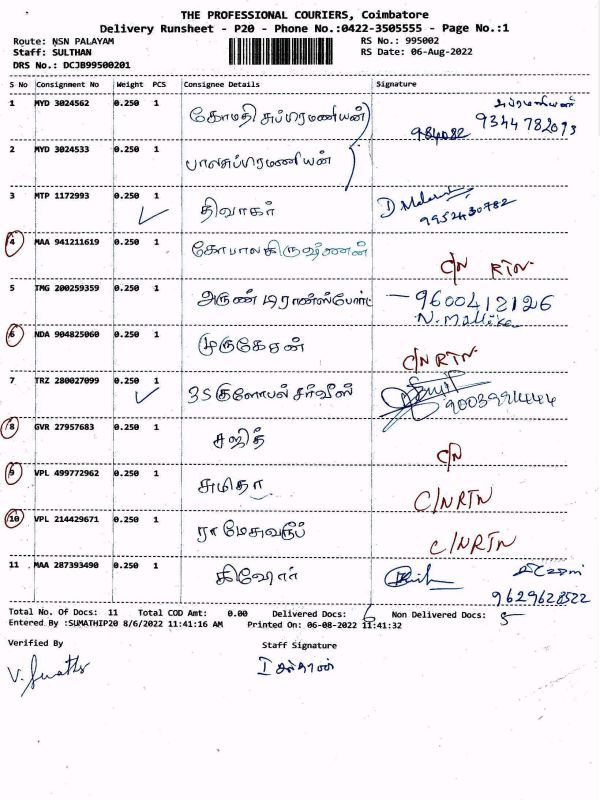 THE PROFESSIONAL COURIERS, Coimbatore
Delivery Runsheet - P20 - Phone No.:0422-3505555 - Page No.:1
Route: NSN PALAYAM RS No.: 995002
Staff: SULTHAN RS Date: 06-Aug-2022
DRS No.: DCJB99500201
S No Consignment No Weight PCS Consignee Details Signature
1 MYD 3024562 0.250 1 கோமதி சுப்பிரமணியன்
984082 9344782093
2 MYD 3024533 0.250 1 பாலசுப்பிரமணியன்
3 MTP 1172993 0.250 1 திவாகர்
9952430782
4 MAA 941211619 0.250 1 கோபாலகிருஷ்ணன் C/N RTN
5 TMG 200259359 0.250 1 அருண் டிரான்ஸ்போர்ட் - 9600412126
N. Mallika
6 NDA 904825060 0.250 1 முருகேசன் C/N RTN
7 TRZ 280027099 0.250 1 3S குளோபல் சர்வீஸ்
8 GVR 27957683 0.250 1 சஜித் C/N
9 VPL 499772962 0.250 1 சுமிதா C/NRTN
10 VPL 214429671 0.250 1 C/NRTN
11 MAA 287393490 0.250 1 கிஷோர்
9629628522
Total No. Of Docs: 11 Total COD Amt: 0.00 Delivered Docs: 6 Non Delivered Docs: 5
Entered By :SUMATHIP20 8/6/2022 11:41:16 AM Printed On: 06-08-2022 11:41:32
Verified By Staff Signature